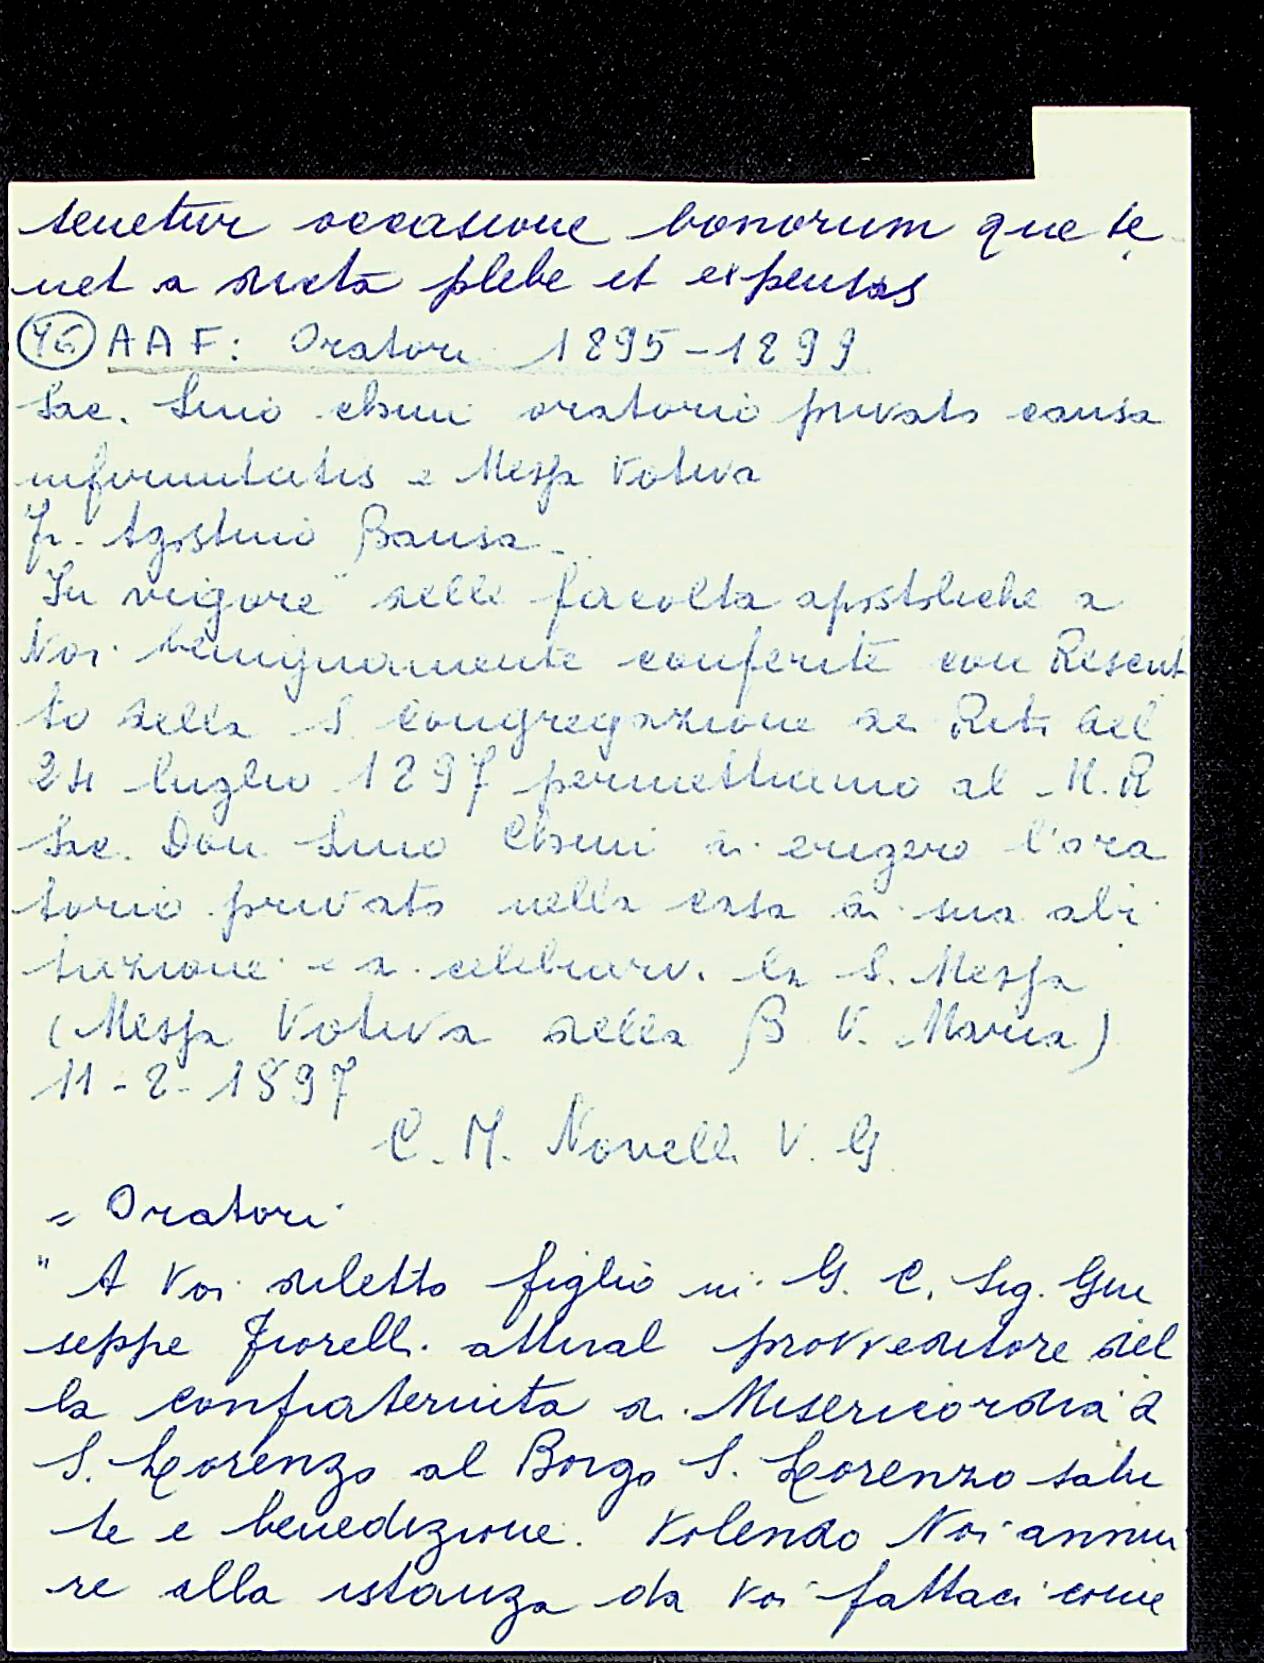 tenetur occasione bonorum que te
net a dicta plebe et expensas
46 AAF: Oratori 1895-1899
Sac. Lino Chini oratorio privato causa
infirmitatis e Messa Votiva
Fr. Agostino Bausa.
"In vigore" delle facolta apostoliche a
Noi benignamente conferite con Rescrit
to della S. Congregazione dei Riti del
24 luglio 1897 permettiamo al M.R
Sac. Don Lino Chini di erigere l'ora
torio privato nella casa di sua abi
tazione e di celebrarvi la S. Messa
(Messa Votiva della B. V. Maria)
11-2-1897
C. M. Novelli V. G
= Oratori
" A Voi diletto figlio in G. C. Sig. Giu
seppe Fiorelli attual provveditore del
la confraternita di Misericordia di
S. Lorenzo al Borgo S. Lorenzo salu
te e benedizione. Volendo Noi annui
re alla istanza da Voi fattaci come